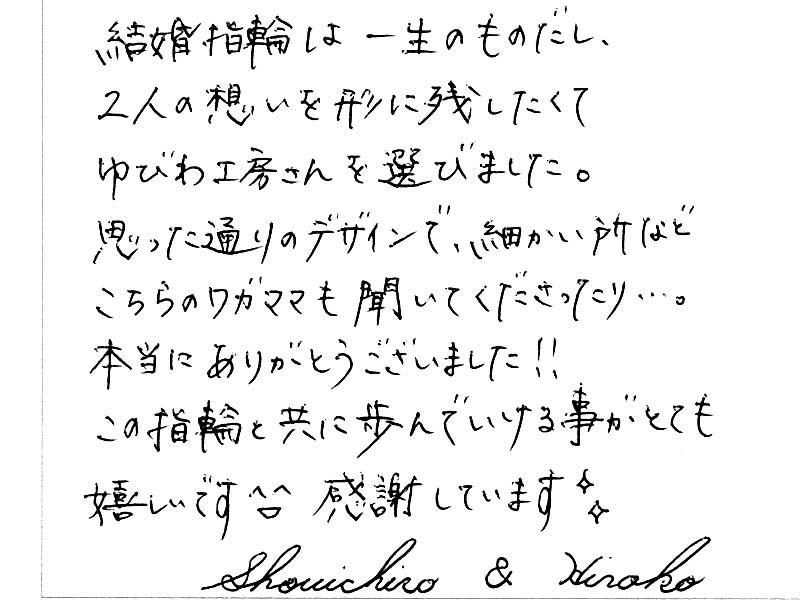 結婚指輪は一生のものだし、
2人の想いを形に残したくて
ゆびわ工房さんを選びました。
思った通りのデザインで、細かい所など
こちらのワガママも聞いてくださったり…。
本当にありがとうございました!!
この指輪と共に歩んでいける事がとても
嬉しいです^□^ 感謝しています✧✧
Shouichiro & Hiroko